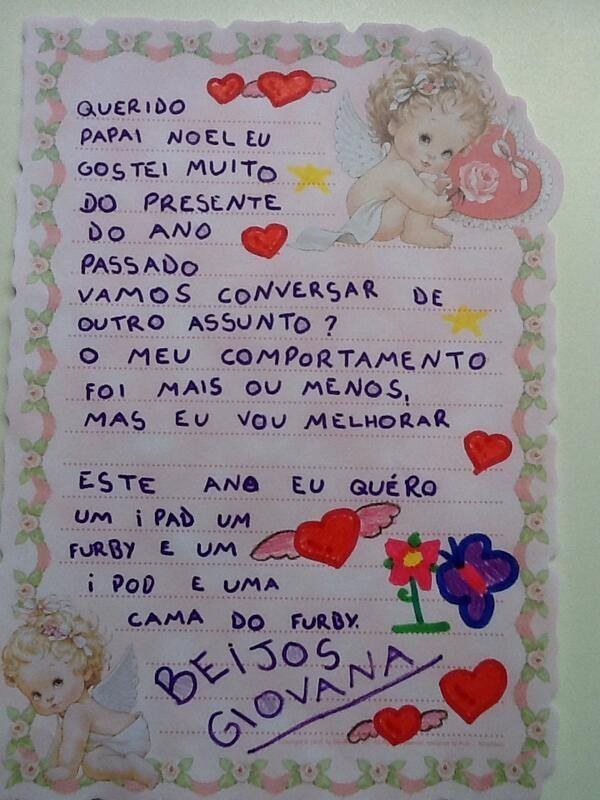 QUERIDO
PAPAI NOEL EU
GOSTEI MUITO
DO PRESENTE
DO ANO
PASSADO
VAMOS CONVERSAR DE
OUTRO ASSUNTO ?
O MEU COMPORTAMENTO
FOI MAIS OU MENOS,
MAS EU VOU MELHORAR
ESTE ANO EU QUÉRO
UM iPAD UM
FURBY E UM
iPOD E UMA
CAMA DO FURBY.
BEIJOS
GIOVANA